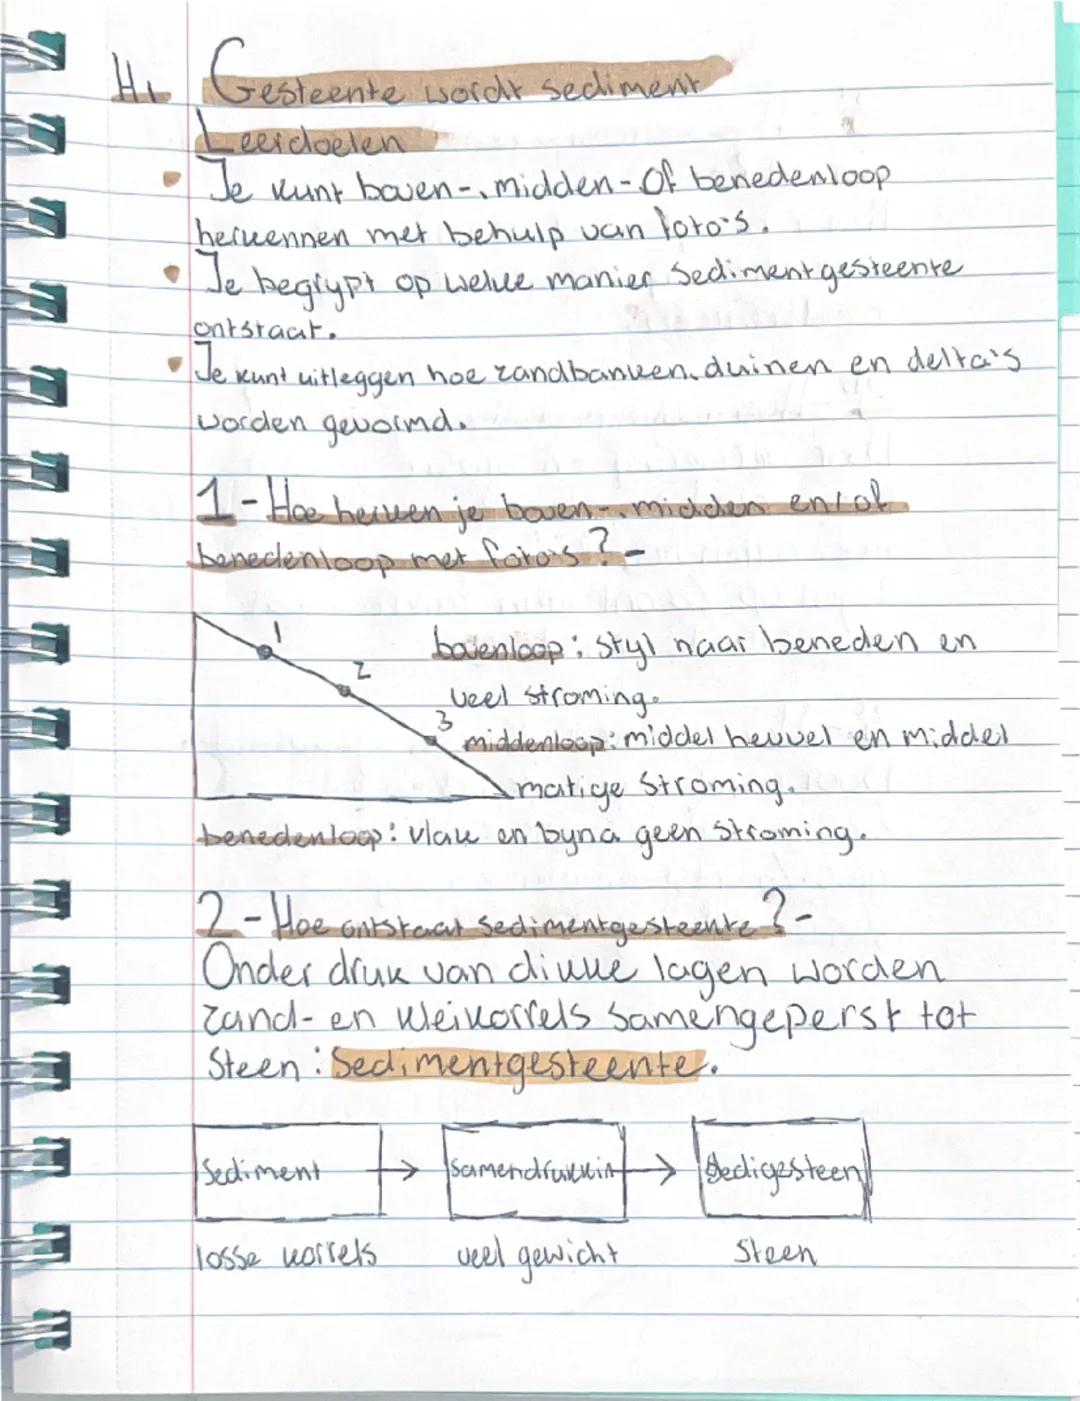 H1 Gesteente wordt sediment
Leerdoelen
Je kunt boven-, midden- of benedenloop
herkennen met behulp van foto's.
Je begrypt op welke manier Sedimentgesteente
ontstaat.
Je kunt uitleggen hoe zandbanken, duinen en delta's
worden gevormd.
1 - Hoe herken je boven-, midden en/of
benedenloop met foto's? -
1
2
3
bovenloop: styl naar beneden en
veel stroming.
middenloop: middel heuvel en middel
matige Stroming.
benedenloop: vlak en byna geen Stroming.
2 - Hoe ontstaat Sedimentgesteente? -
Onder druk van dikke lagen worden
zand- en kleikorrels Samengeperst tot
Steen: Sedimentgesteente.
Sediment → Samendrukkin → Sedigesteen
losse korrels veel gewicht Steen